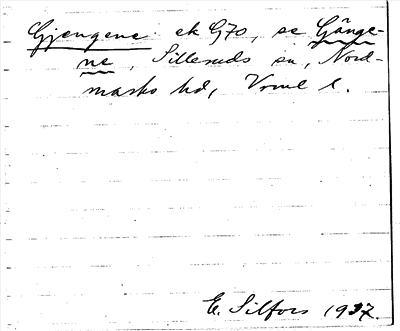 Gjengene ek G70, se Gänge-
ne, Silleruds sn, Nord-
marks hd, Vrml l.
E. Silfors 1937.